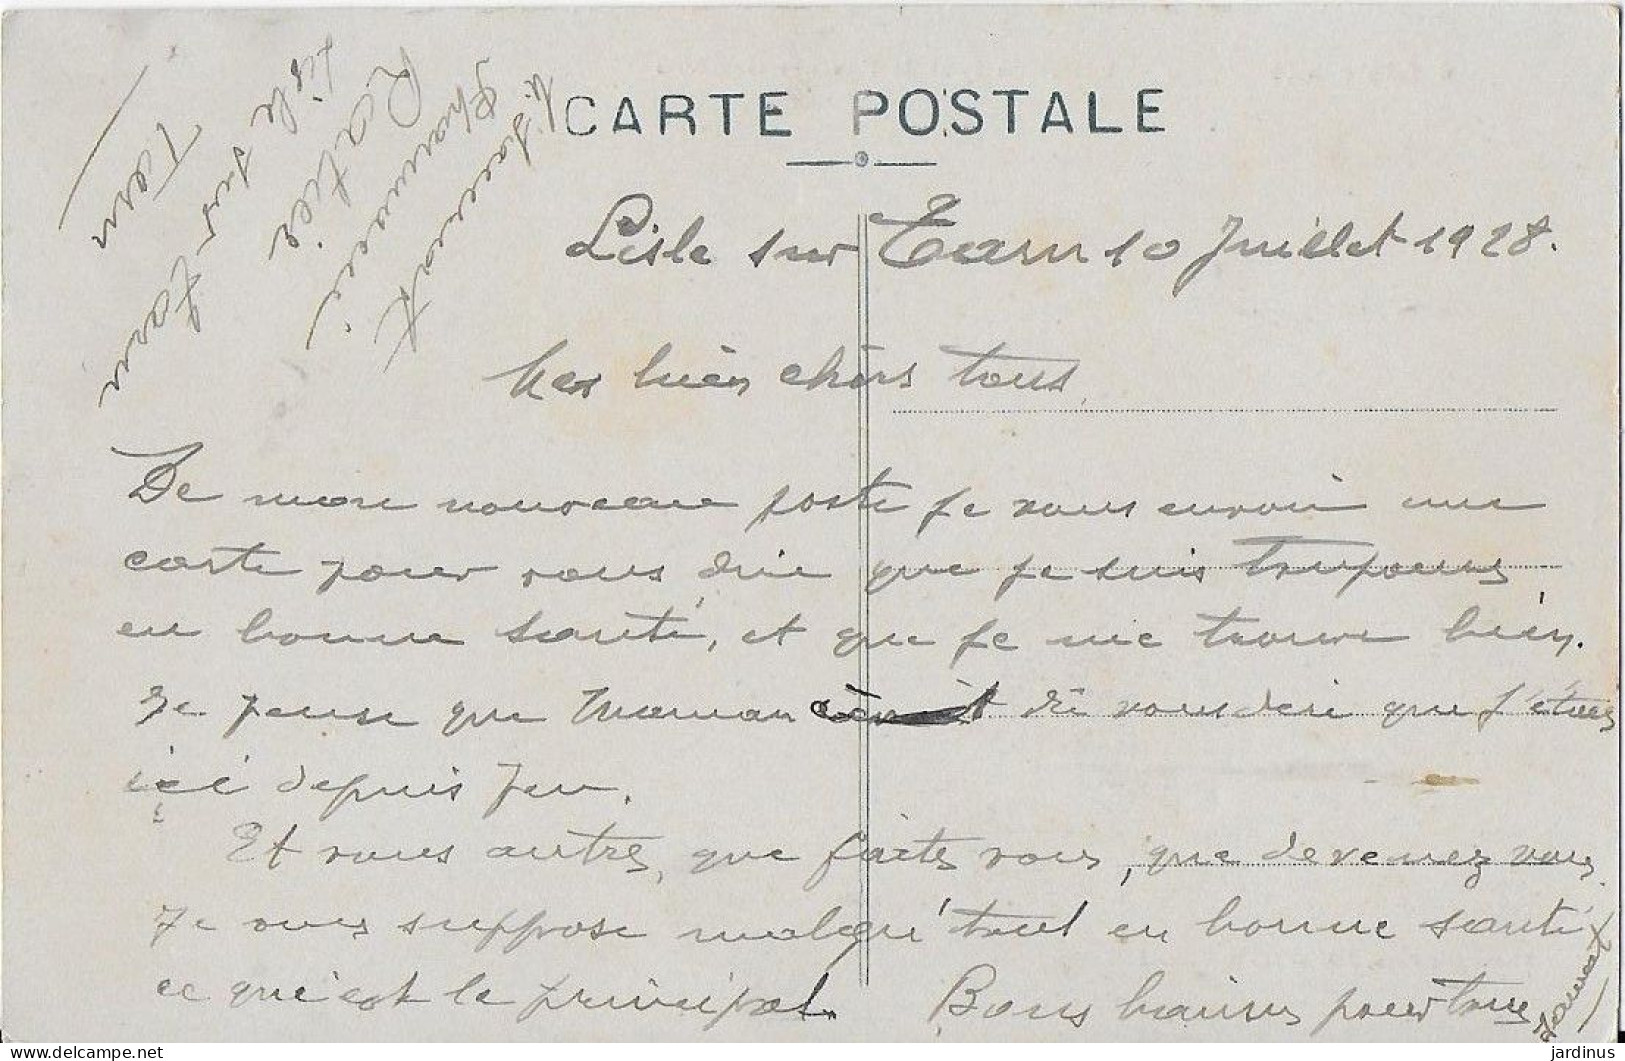 CARTE POSTALE
Pharmacie
Ratié
Lisle sur Tarn
Tarn
Lisle sur Tarn 10 Juillet 1928.
Mes bien chèrs tous
De mon nouveau poste je vous envoie une
carte pour vous dire que je suis toujours
en bonne santé, et que je me trouve bien.
Je pense que Maman a dû vous dire que j'étais
içi depuis peu.
Et vous autres, que faites vous, que devenez vous.
Je vous suppose malgré tout en bonne santé
ce qui est le principal. Bons baisers pour tous
jardinus
delcampe.net